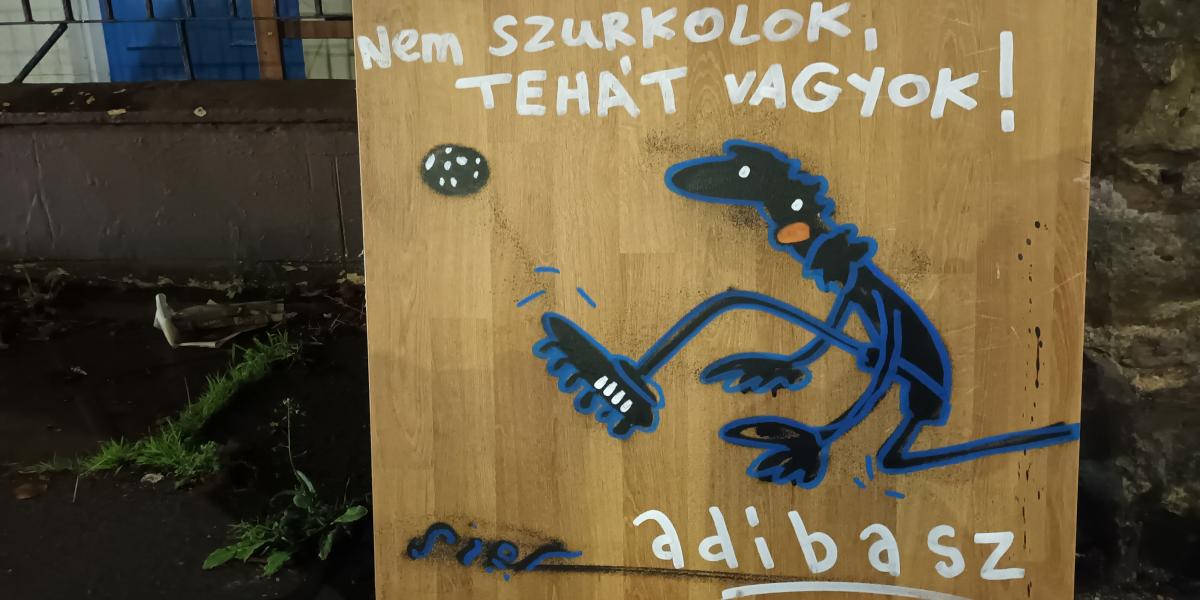 Nem SZURKOLOK,
TEHÁT VAGYOK!
adibasz